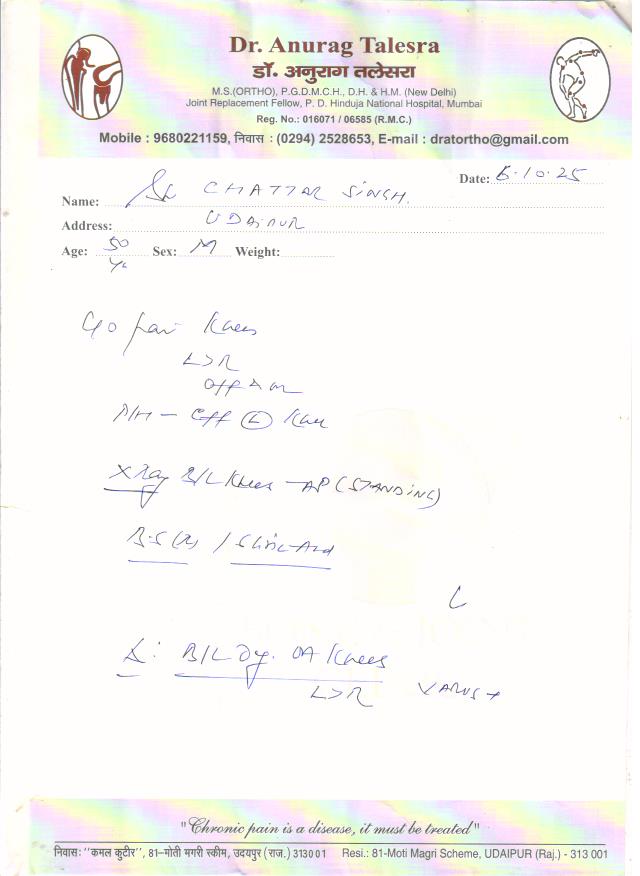 Dr. Anurag Talesra
डॉ. अनुराग तलेसरा
M.S.(ORTHO), P.G.D.M.C.H., D.H. & H.M. (New Delhi)
Joint Replacement Fellow, P. D. Hinduja National Hospital, Mumbai
Reg. No.: 016071 / 06585 (R.M.C.)
Mobile : 9680221159, निवास : (0294) 2528653, E-mail : dratortho@gmail.com
Date: 6.10.25
Name: CHATTAR SINGH.
Address: UDAIPUR
Age: 50 Sex: M Weight:
Yr
C/o pain Knees
L>R
off & on
P/H - Eff (L) Knee
X Ray B/L Knees - AP (STANDING)
B.S (R) / S. Uric Acid
L
Δ: B/L Dg. OA Knees
L>R VARUS +
"Chronic pain is a disease, it must be treated"
निवास: "कमल कुटीर", 81-मोती मगरी स्कीम, उदयपुर (राज.) 313001 Resi.: 81-Moti Magri Scheme, UDAIPUR (Raj.) - 313 001